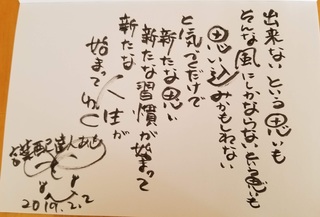 出来ないという思いも
そんな風にしかならないという思いも
思い込みかもしれない
と気づくだけで
新たな思い
新たな習慣が始まって
新たな
人生が
始まってゆく
2019.2.2